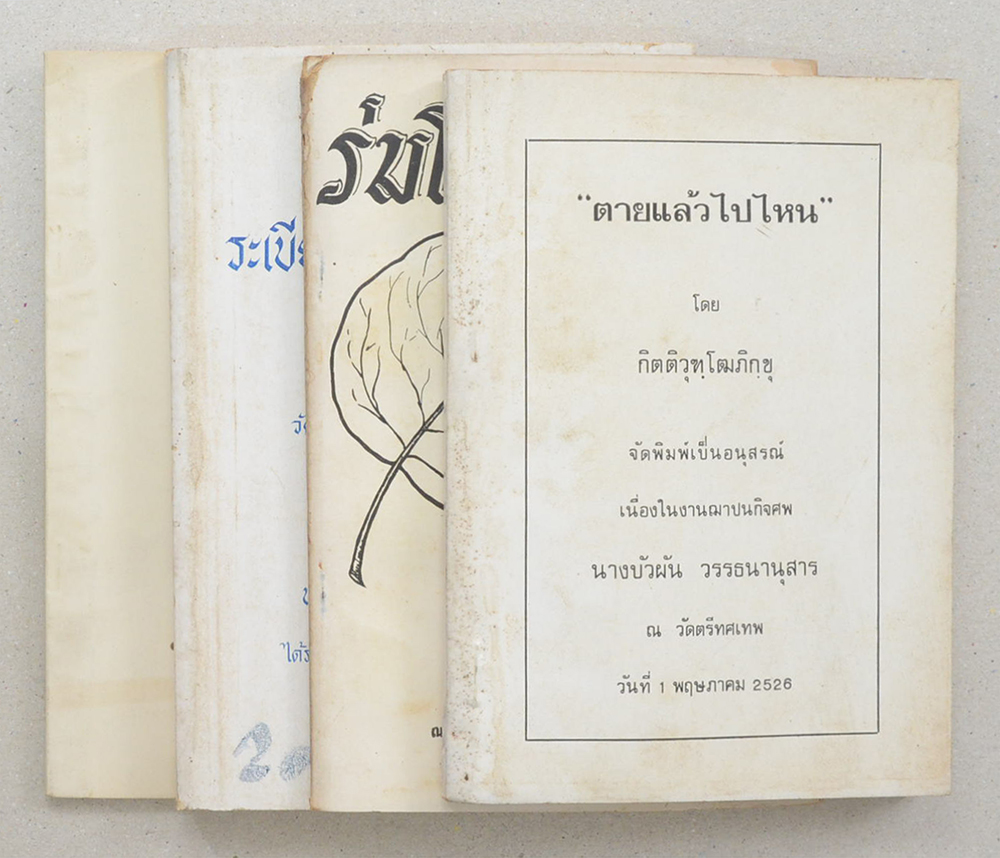 "ตายแล้วไปไหน"
โดย
กิตติวุฑฺโฒภิกฺขุ
จัดพิมพ์เป็นอนุสรณ์
เนื่องในงานฌาปนกิจศพ
นางบัวผัน วรรธนานุสาร
ณ วัดตรีทศเทพ
วันที่ 1 พฤษภาคม 2526
ร่ม
ณ
ระเบี